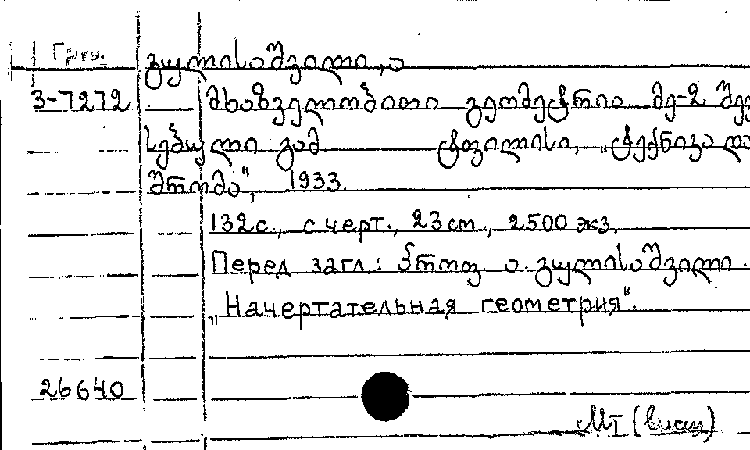 Груз.
გულისაშვილი, ა
3-7272 მხაზველობითი გეომეტრია მე-2 შევ
სებული გამ ტფილისი, „ტექნიკა და
შრომა", 1933.
132с., с черт., 23см., 2500 экз.
Перед загл: პროფ ა. გულისაშვილი.
„Начертательная геометрия".
26640